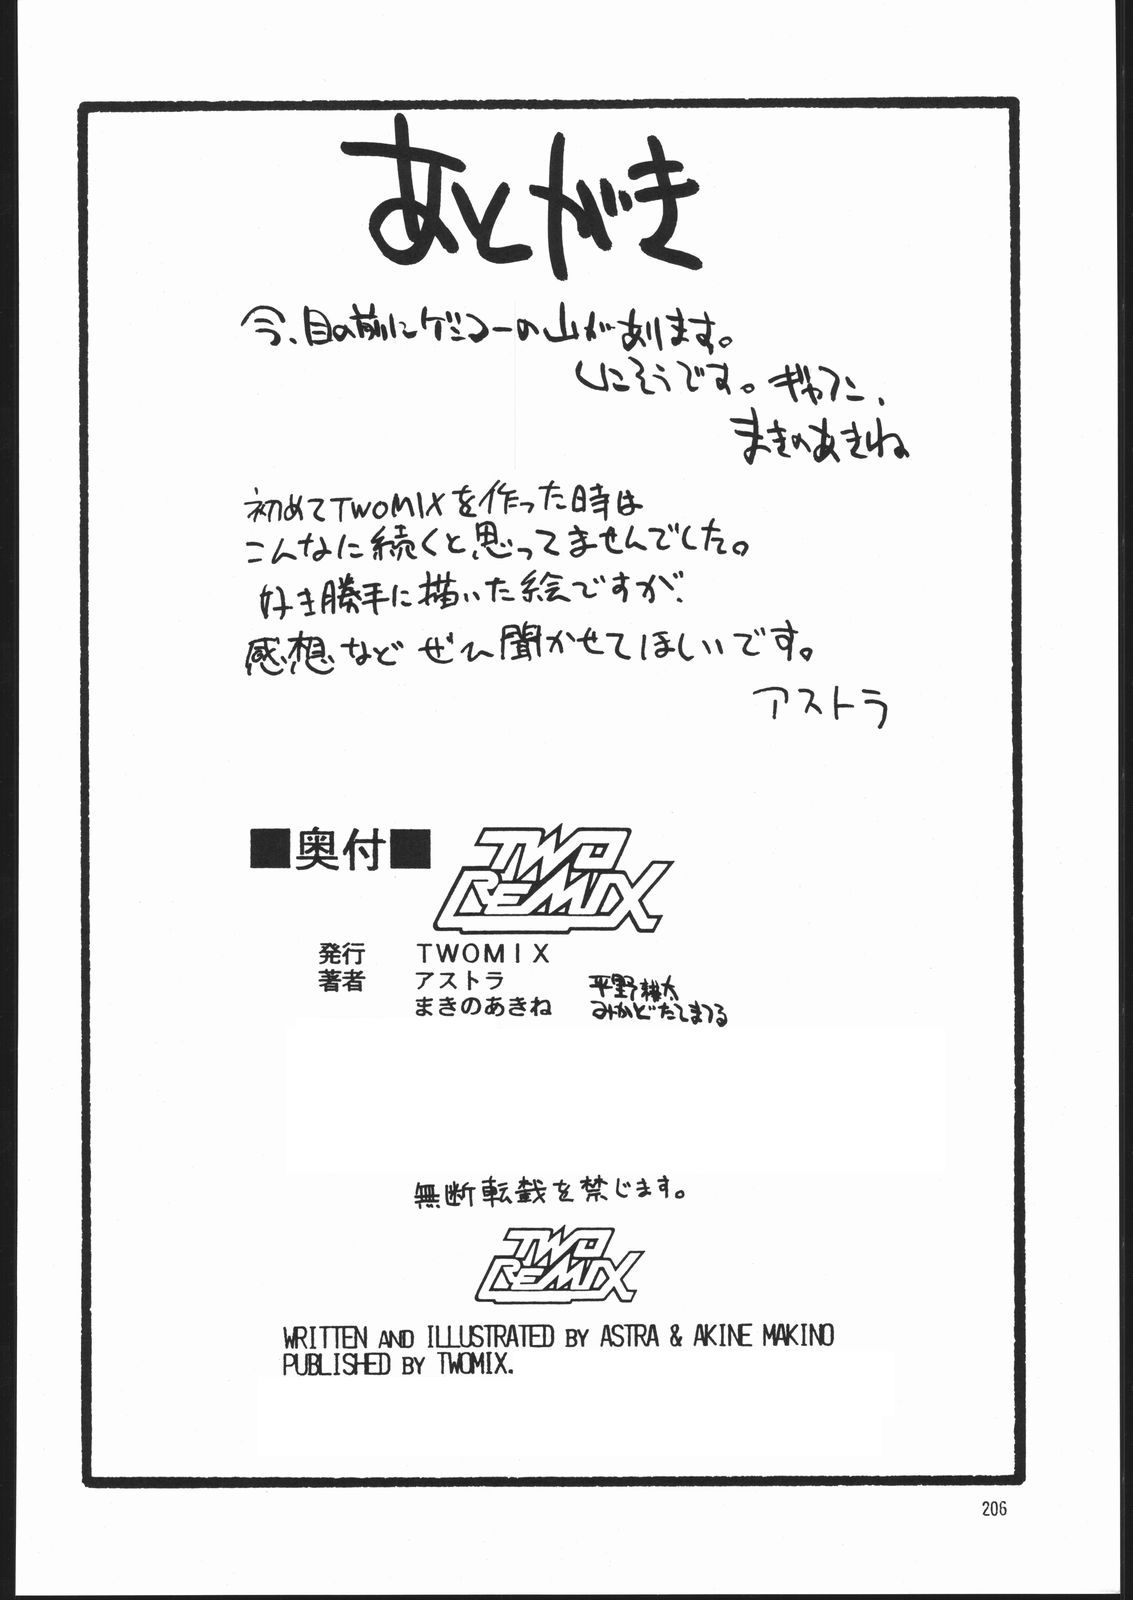 あとがき
今、目の前にゲンコーの山があります。
しにそうです。ギャフン、
まきのあきね
初めてTWOMIXを作った時は
こんなに続くと思ってませんでした。
好き勝手に描いた絵ですが、
感想など ぜひ聞かせてほしいです。
アストラ
■奥付■ TWO REMIX
発行 TWOMIX
著者 アストラ 平野耕太
まきのあきね みかどたてまつる
無断転載を禁じます。
TWO REMIX
WRITTEN AND ILLUSTRATED BY ASTRA & AKINE MAKINO
PUBLISHED BY TWOMIX.
206